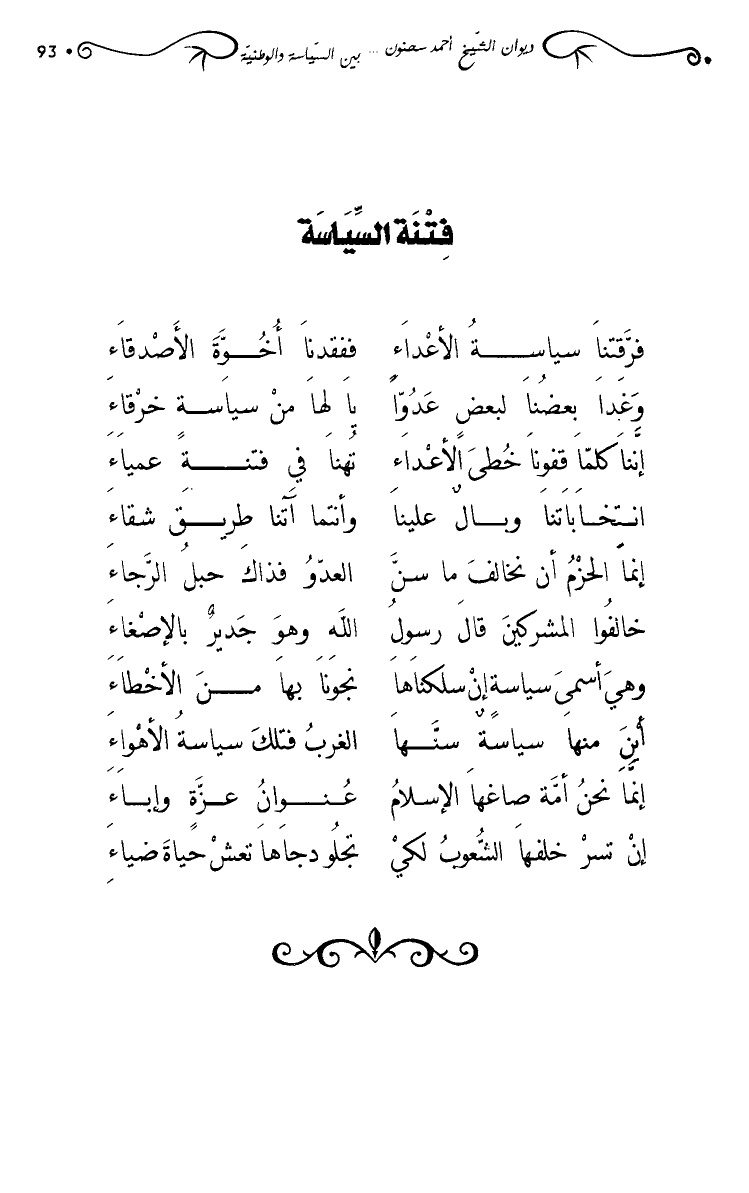 ديوان الشّيخ أحمد سحنون ... بين السّياسة والوطنيّة • 93
فِتْنَة السِّيَاسَة
فرَّقتنا سياســـة الأعْداء ففقدنا أُخُــوَّةَ الأَصْدقاء
وَغدا بعضنا لبعضٍ عَدُوّاً يا لها منْ سياســةٍ خرْقاء
إننا كلمّا قفونا خُطى الأعْداء تُهنا في فتنـــةٍ عمياء
انـتـخـاباتنا وبـــال علينا وأنتما آتنا طريـــق شقاء
إنما الحزْمُ أن نخالفَ ما سـنَّ العدّوُ فذاكَ حبلُ الرَّجاء
خالفُوا المشركينَ قال رسولُ اللَه وهوَ جَديرٌ بالإصْغاء
وهيَ أسمىَ سياسةٍ إنْ سلكناها نجونا بها مـــنَ الأخْطاء
أينَ منها سياسةٌ سنَّـــها الغربُ فتلكَ سياسةُ الأهْواء
إنّما نحنُ أمَّة صاغها الإسلامُ عُنــوانُ عـزَّةٍ وإبــاء
إنْ تسرْ خلفها الشُّعوبُ لكيْ تجلُو دجاها تعشْ حياةَ ضياء